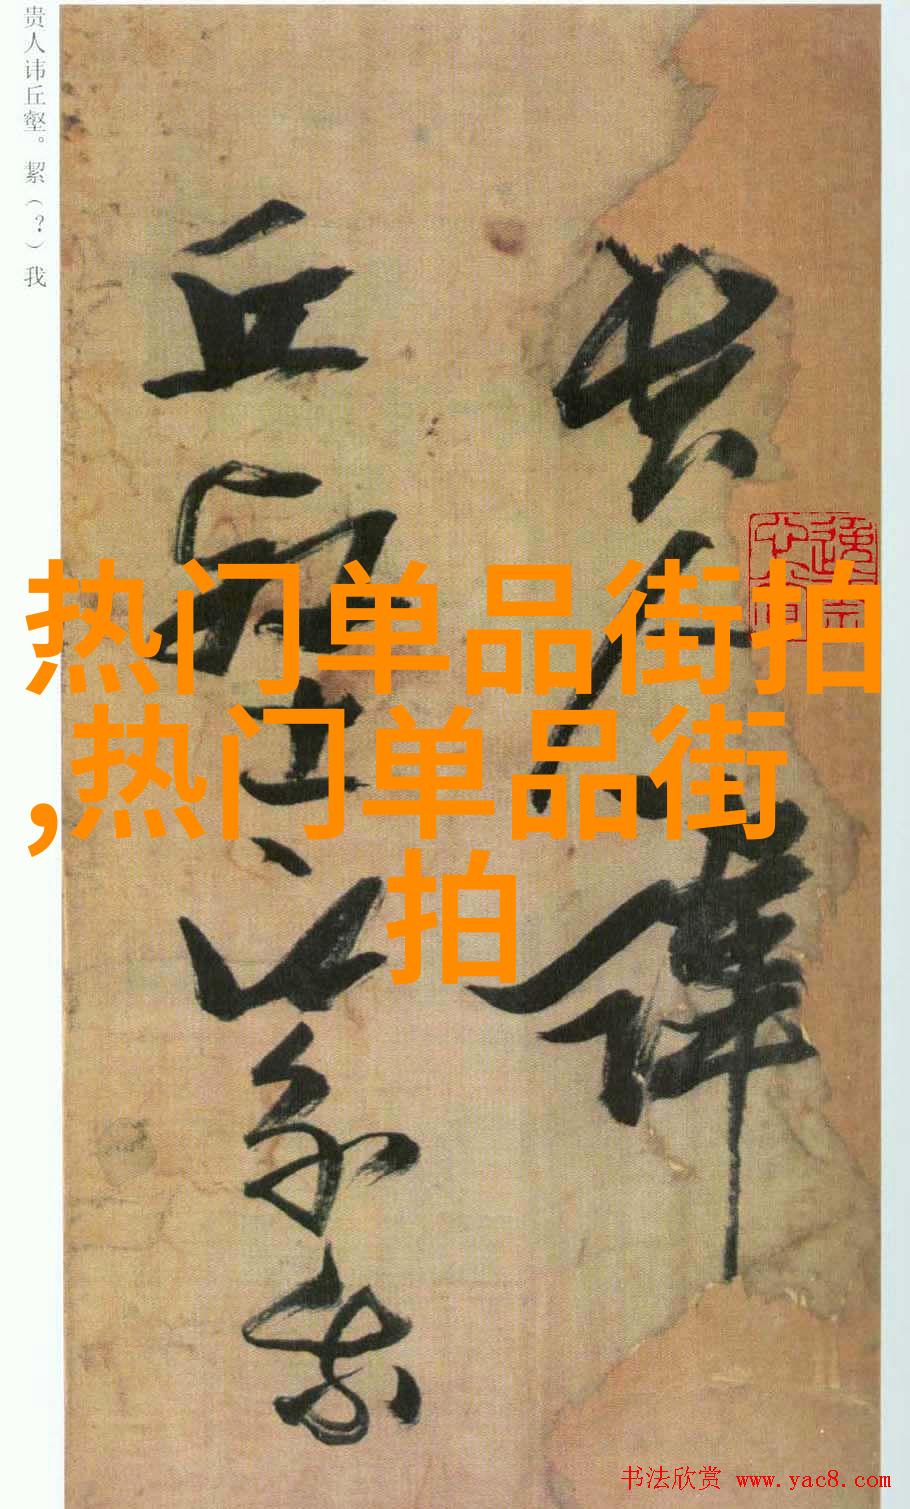 贵人讳丘壑。絜（？）我
贵人讳
丘壑絜我
热门单品街拍
,热门单品街
拍
书法欣赏 www.yac8.com